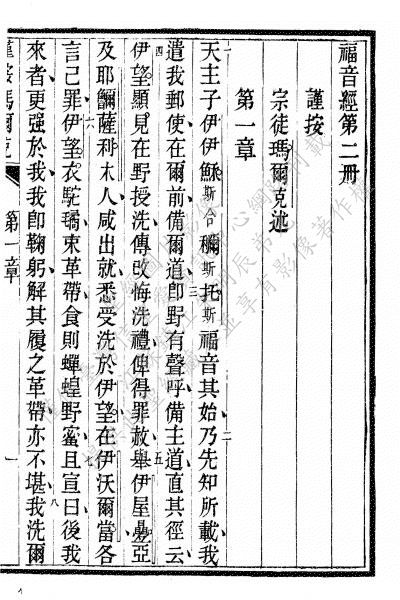 福音經第二冊
謹按
宗徒瑪爾克述
第一章
天主子伊伊穌斯合穪斯托斯福音其始乃先知所載我
遣我郵使在爾前備爾道卽野有聲呼備主道直其徑云
伊望顯見在野授洗傳改悔洗禮俾得罪赦舉伊屋亞
及耶薩利木人咸出就悉受洗於伊望在伊沃爾當各
言己罪伊望衣駝束革帶食則蟬蝗野蜜且宣曰後我
來者更强於我我卽鞠躬解其履之革帶亦不堪我洗爾
第一章
一